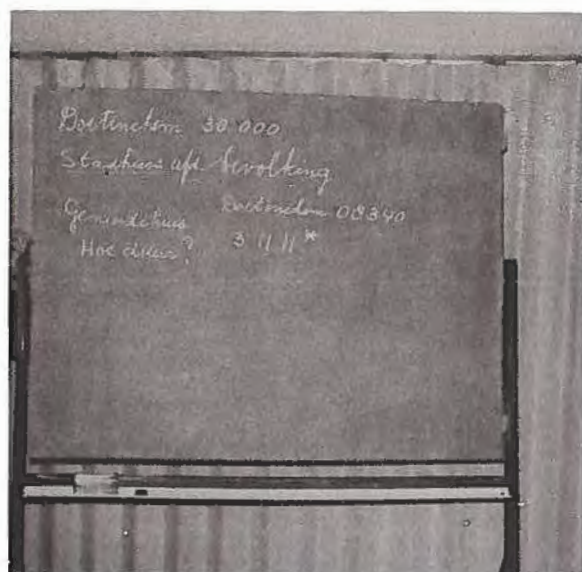 Doetinchem 30.000
Stadhuis afd. bevolking
Gemeentehuis Doetinchem 08340
Hoe duur? 3 11 11 *